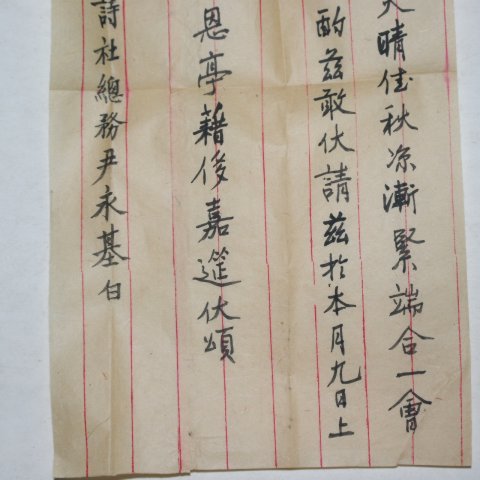 天晴佳秋凉漸緊端合一會
酌茲敢伏請茲於本月九日上
恩亭藉俟嘉筵伏頌
詩社總務尹永基白